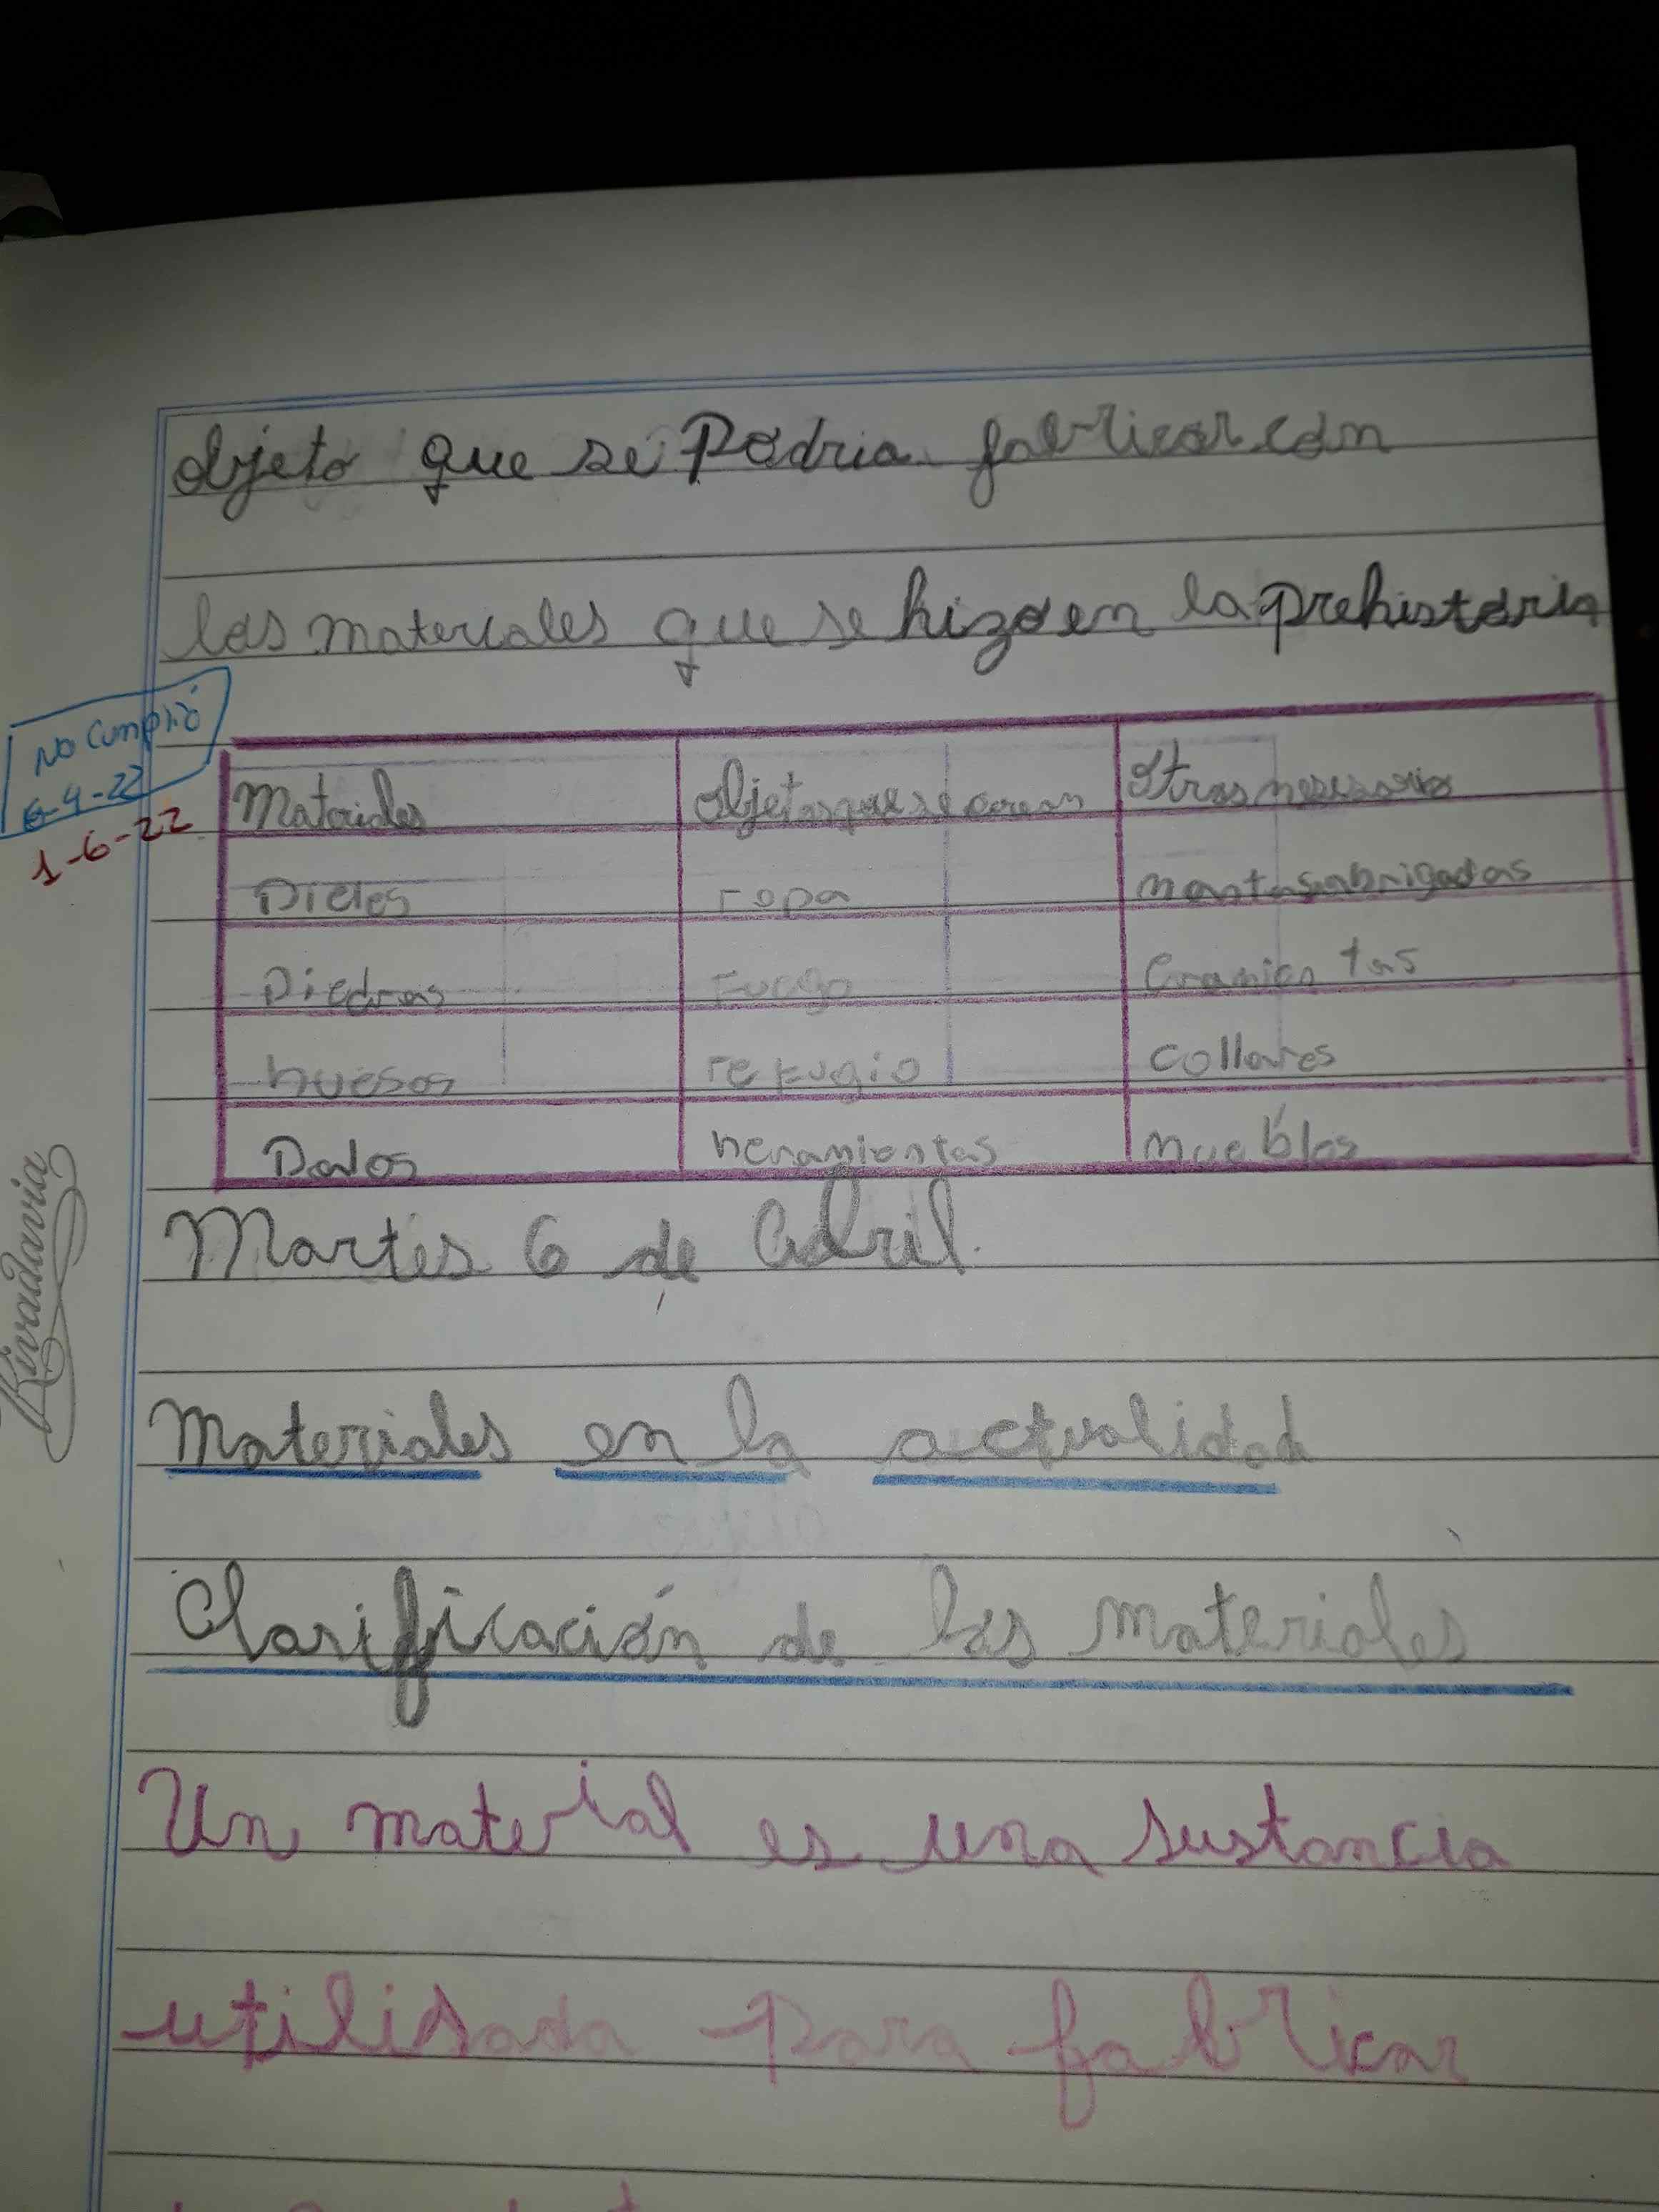 objeto que se Podria fabricar con
los materiales que se hizo en la prehistoria
No cumplió
6-4-22
1-6-22
Materiales objetos que se crean Otros nesesarios
Pieles ropa mantas abrigadas
Piedras Fuego
huesos refugio collares
Palos heramientas muebles
Martes 6 de Abril
Materiales en la actualidad
Clasificación de los materiales
Un material es una sustancia
utilisada para fabricar
Rivadavia